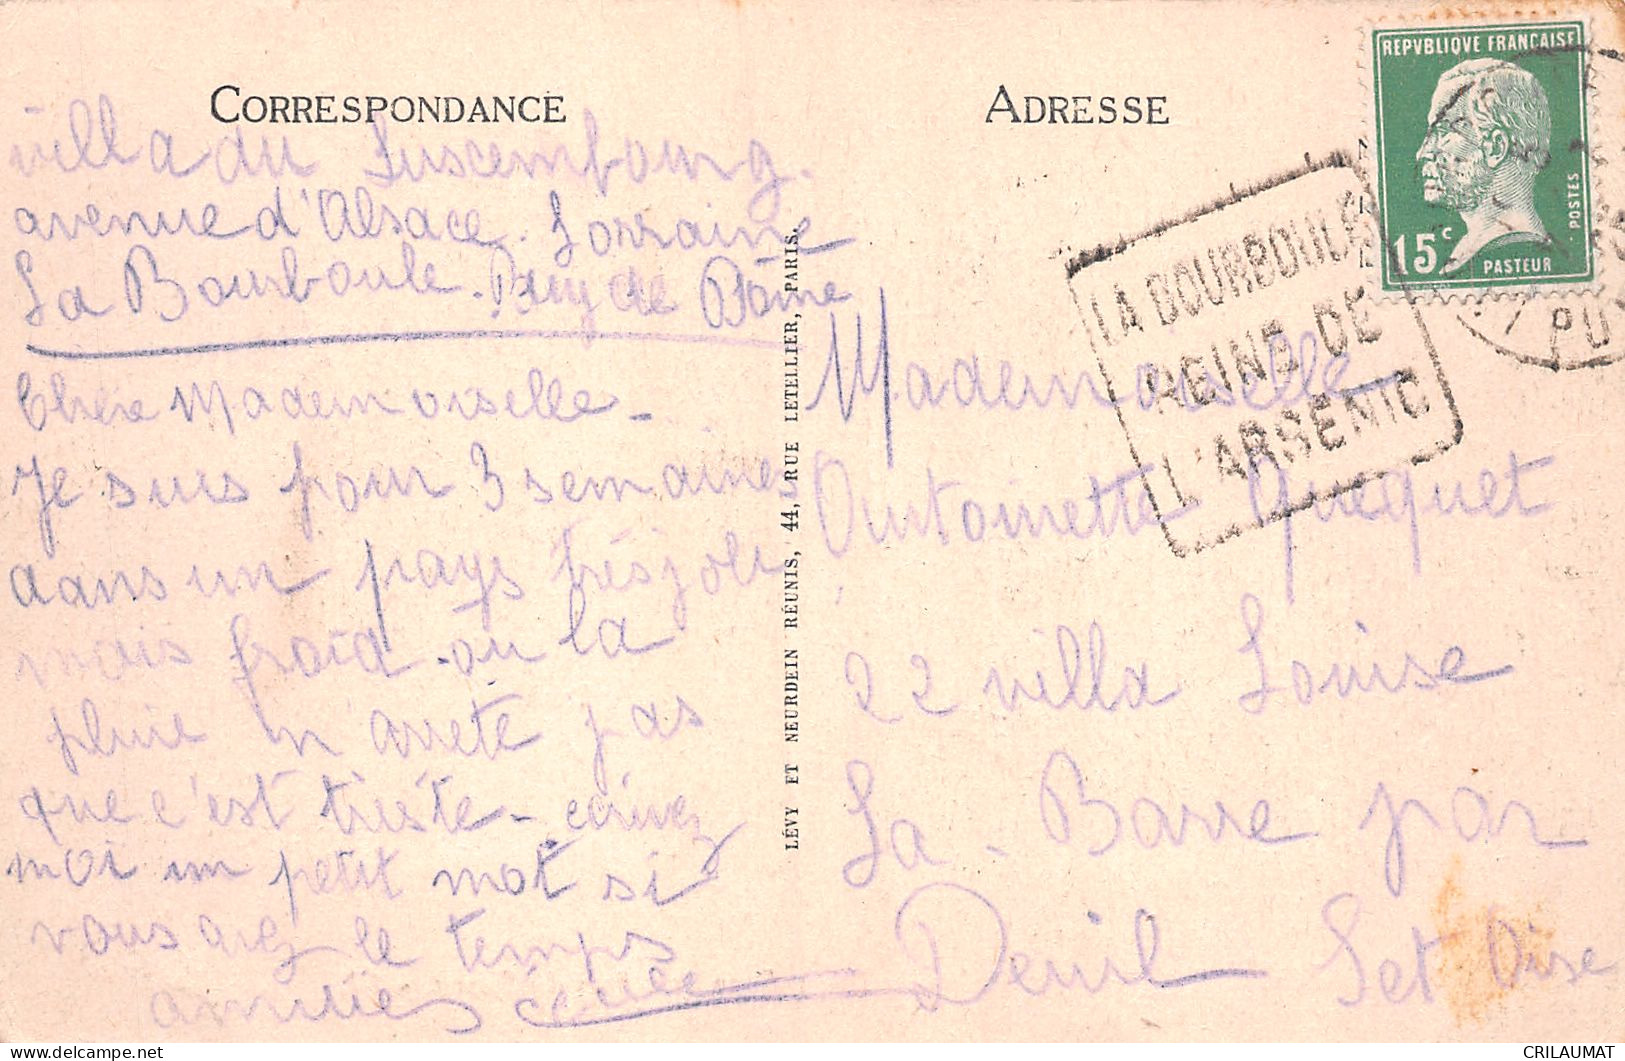 CORRESPONDANCE
villa du Luxembourg.
avenue d'Alsace. Lorraine
La Bourboule. Puy de Dôme
Chère Mademoiselle -
Je suis pour 3 semaines
dans un pays très joli
mais froid - ou la
pluie n'arrete pas
que c'est triste - ecrivez
moi un petit mot si
vous avez le temps
amitiés
LÉVY ET NEURDEIN RÉUNIS, 44, RUE LETELLIER, PARIS.
ADRESSE
REPVBLIQVE FRANÇAISE
15c
PASTEUR
POSTES
PUY
LA BOURBOULE
REINE DE
L'ARSENIC
Mademoiselle
Antoinette Quequet
22 villa Louise
La - Barre par
Deuil Set Oise
CRILAUMAT